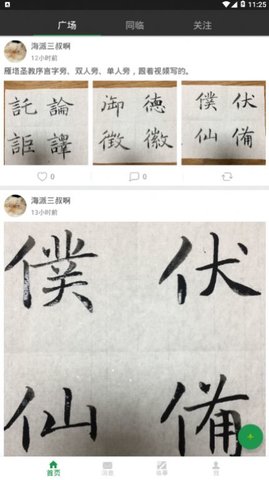 11:25
广场 同临 关注
海派三叔啊
12小时前
雁塔圣教序言字旁、双人旁、单人旁,跟着视频写的。
託 論 御 德 僕 伏
詎 譯 徵 徽 仙 備
0 0
海派三叔啊
13小时前
僕 伏
仙 備
首页 消息 临摹 我